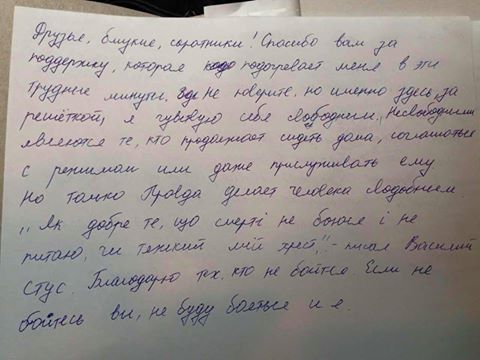 Друзья, близкие, соратники! Спасибо вам за
поддержку, которая подогревает меня в эти
трудные минуты. Не поверите, но именно здесь, за
решёткой, я чувствую себя свободным. Несвободными
являются те, кто продолжает сидеть дома, соглашаться
с режимом или даже прислуживать ему
Но только Правда делает человека свободным.
"Як добре те, що смерті не боюсь і не
питаю, чи тяжкий мій хрест," - писал Василий
Стус. Благодарю тех, кто не боится. Если не
боитесь вы, не буду бояться и я.